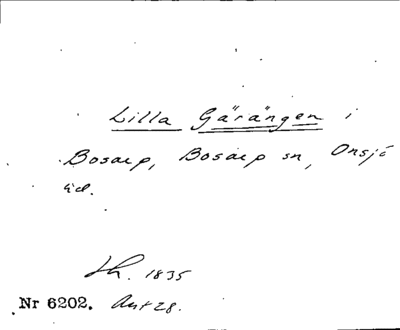 Lilla Gärängen i
Bosarp, Bosarp sn, Onsjö
hd.
Lh. 1835
Nr 6202. Ant 28.